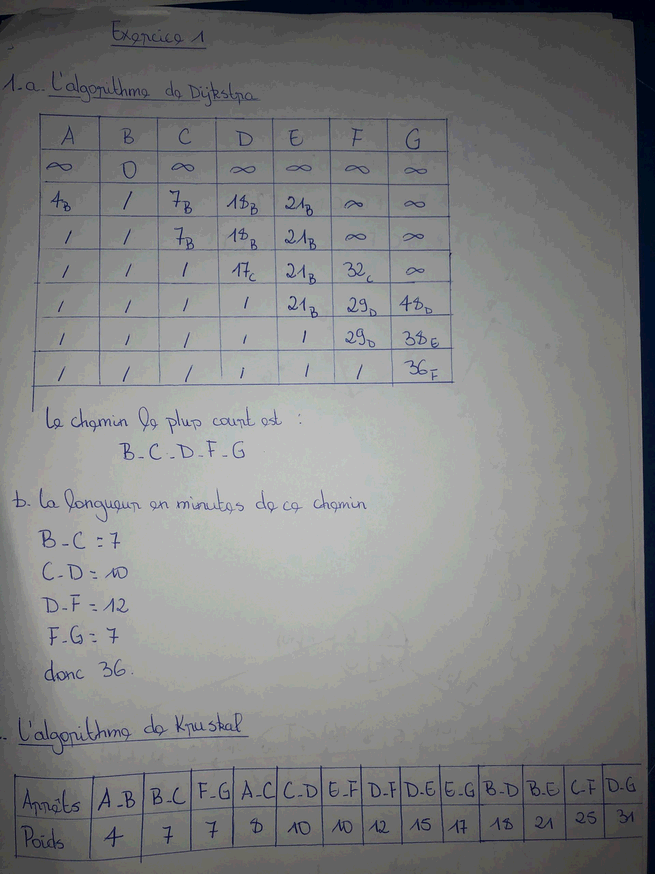 Exercice 1
1.a. L'algorithme de Dijkstra
A B C D E F G
∞ 0 ∞ ∞ ∞ ∞ ∞
4B / 7B 18B 21B ∞ ∞
/ / 7B 18B 21B ∞ ∞
/ / / 17C 21B 32C ∞
/ / / / 21B 29D 48D
/ / / / / 29D 38E
/ / / / / / 36F
Le chemin le plus court est :
B-C-D-F-G
b. La longueur en minutes de ce chemin
B-C = 7
C-D = 10
D-F = 12
F-G = 7
donc 36.
. L'algorithme de Kruskal
Arrêts A-B B-C F-G A-C C-D E-F D-F D-E E-G B-D B-E C-F D-G
Poids 4 7 7 8 10 10 12 15 17 18 21 25 31